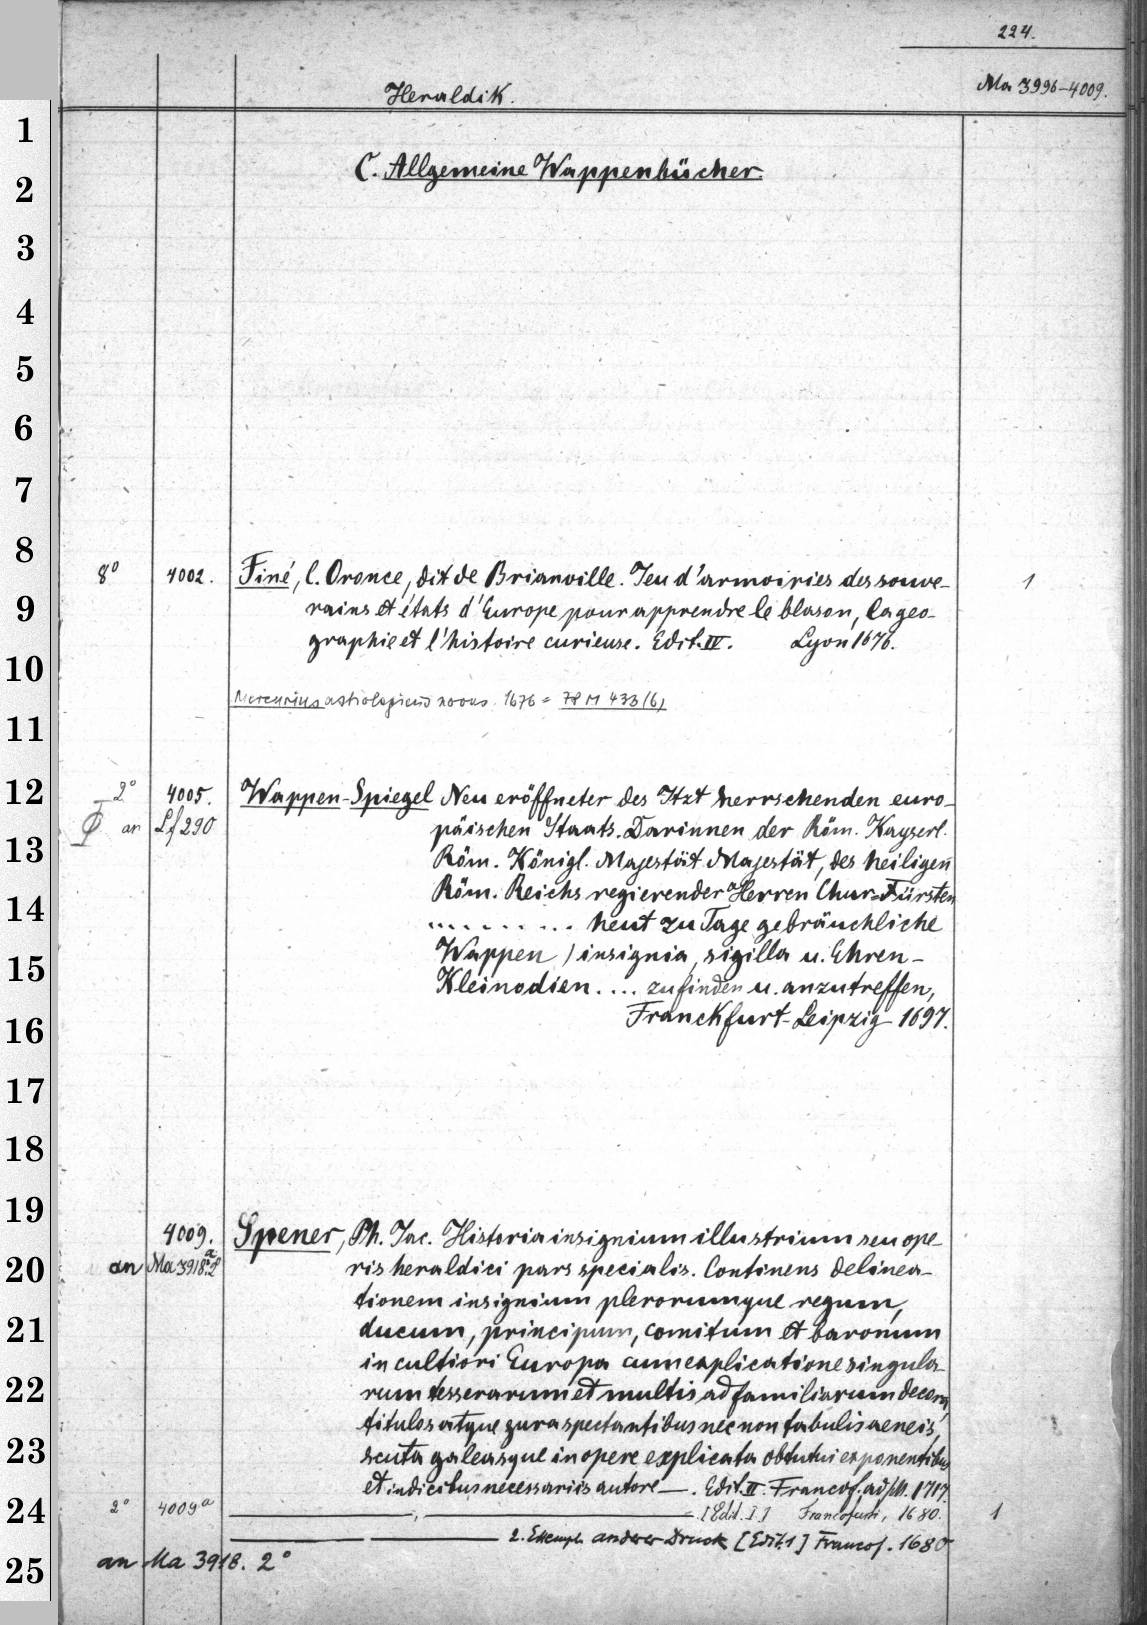 224.
Heraldik.
Ma 3996-4009.
1
C. Allgemeine Wappenbücher.
2
3
4
5
6
7
8
8° 4002. Finé, C. Oronce, dit de Brianville. Jeu d'armoiries des souve- 1
9
rains et états d'Europe pour apprendre le blason, la geo-
graphie et l'histoire curieuse. Edit. IV. Lyon 1676.
10
Mercurius astrologicus novus. 1676 = 78 M 433 (6)
11
12
2° 4005. Wappen-Spiegel Neu eröffneter des Itzt herrschenden euro-
an Lf 290 päischen Staats. Darinnen der Röm. Kayserl.
13
Röm. Königl. Majestät Majestät, des heiligen
Röm. Reichs regierender Herren Chur=Fürsten
14
......... heut zu Tage gebräuchliche
15
Wappen / insignia, sigilla u. Ehren-
Kleinodien .... zu finden u. anzutreffen,
16
Franckfurt-Leipzig 1697.
17
18
19
4009. Spener, Ph. Jac. Historia insignium illustrium seu ope-
20
an Ma 3918a 2° ris heraldici pars specialis. Continens delinea-
tionem insignium plerorumque regum,
21
ducum, principum, comitum et baronum
in cultiori Europa cum explicatione singula-
22
rum tesserarum et multis ad familiarum decora,
titulos atque jura spectantibus nec non tabulis aeneis,
23
scuta galeasque in opere explicata obtutui exponentibus
et indicibus necessariis autore —. Edit. II. Francof. ad M. 1717.
24
2° 4009a —, — [Edit. I] Francofurti, 1680. 1
— — 2. Exempl. anderer Druck [Edit. 1] Francof. 1680
25
an Ma 3918. 2°